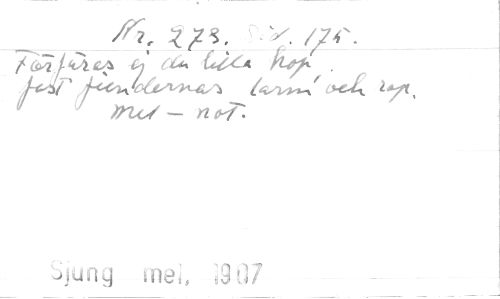 Nr. 273. Sid. 175.
Förfäras ej du lilla hop
fast fiendernas larm och rop.
Mel – not.
Sjung mel, 1907